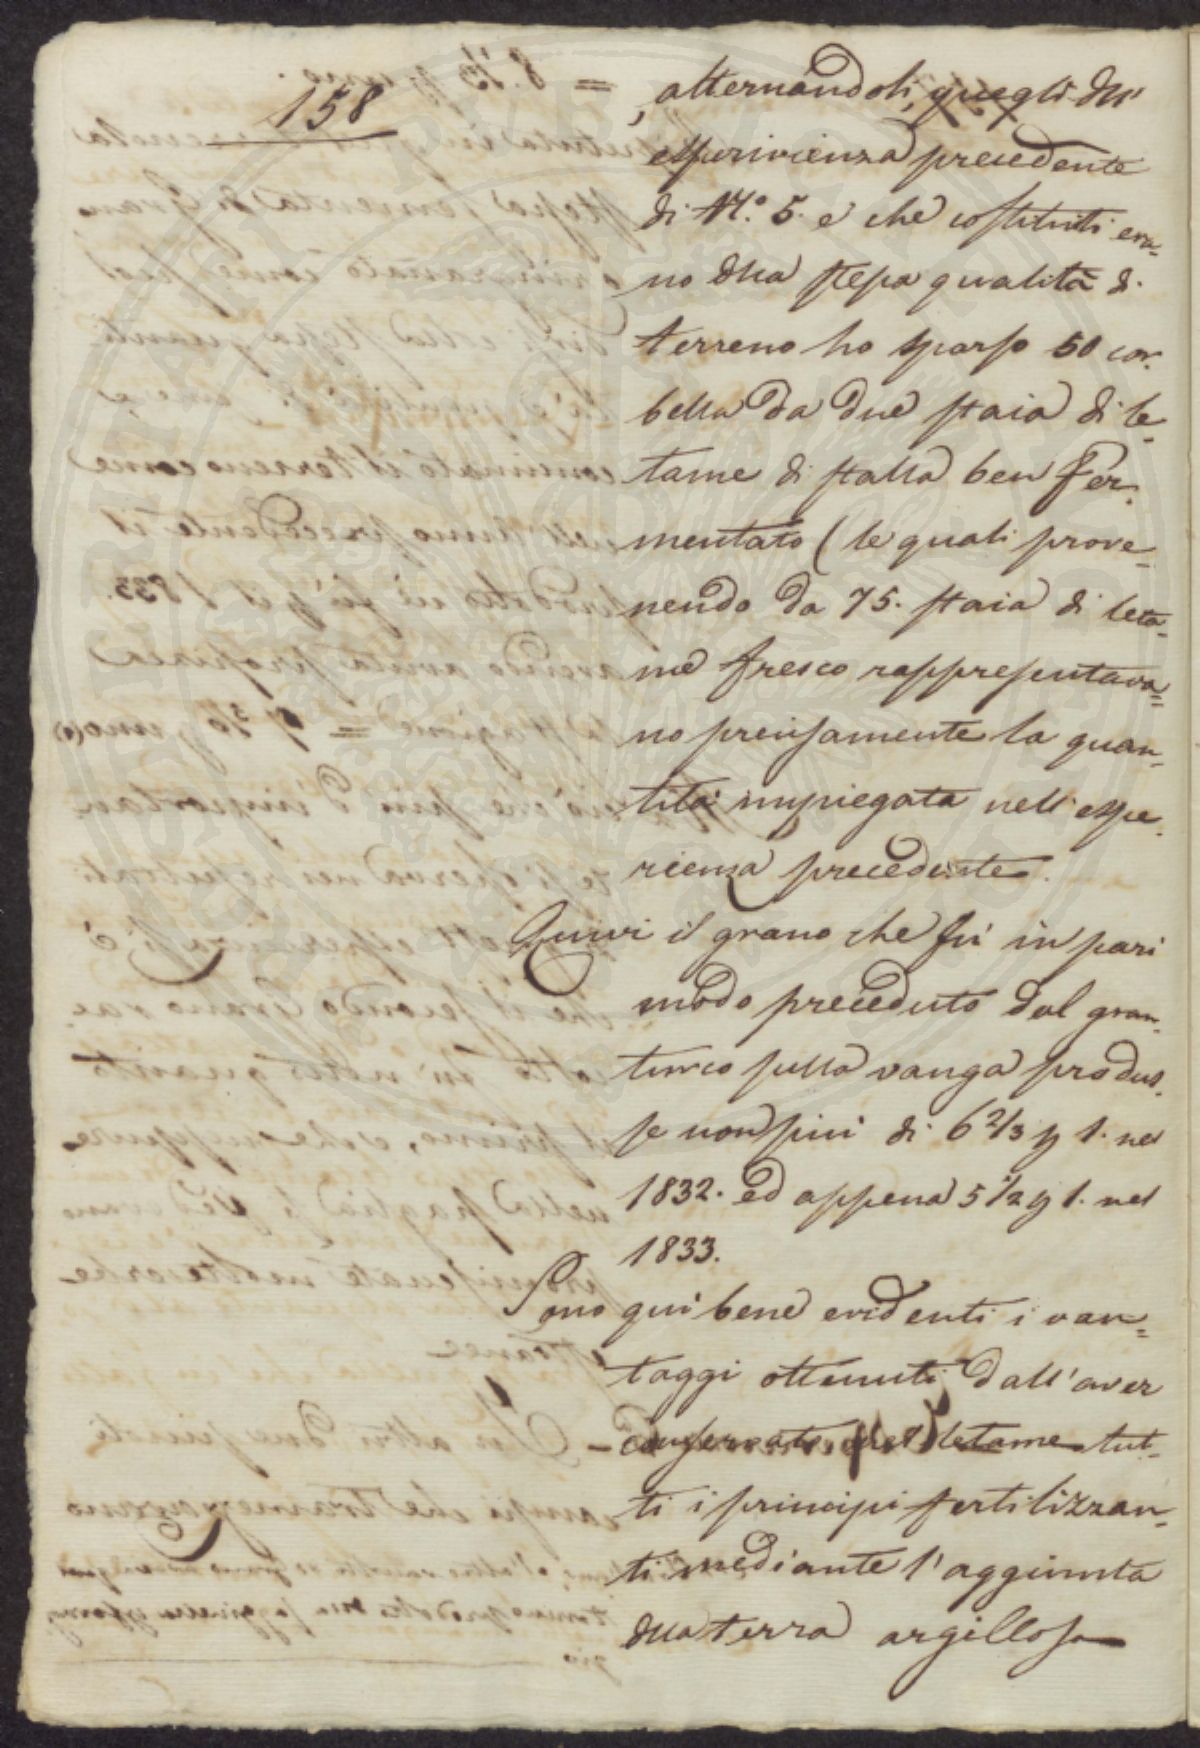 158
alternandoli, quegli dell'
esperivienza precedente
di N.° 5. e che costituiti era=
no della stessa qualità di
terreno ho sparso 50 cor=
bella da due staia di le=
tame di stalla ben fer=
mentato (le quali prove=
nendo da 75. staia di leta=
me fresco rappresentava=
no precisamente la quan=
tità impiegata nell'espe=
rienza precedente.
Quivi il grano che fù in pari
modo preceduto dal gran=
turco sulla vanga produs=
se non più di 6 2/3 p 1. nel
1832. ed appena 5 1/2 p 1. nel
1833.
Sono qui bene evidenti i van=
taggi ottenuti dall'aver
conservato nel letame tut=
ti i principi fertilizzan=
ti mediante l'aggiunta
della terra argillosa